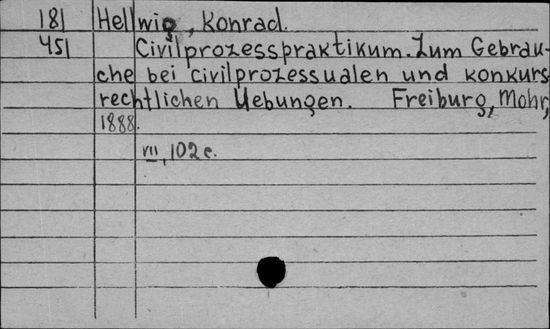 181 Hellwig, Konrad.
451 Civilprozesspraktikum. Zum Gebrau-
che bei civilprozessualen und konkurs
rechtlichen Uebungen. Freiburg, Mohr,
1888.
VII, 102 c.